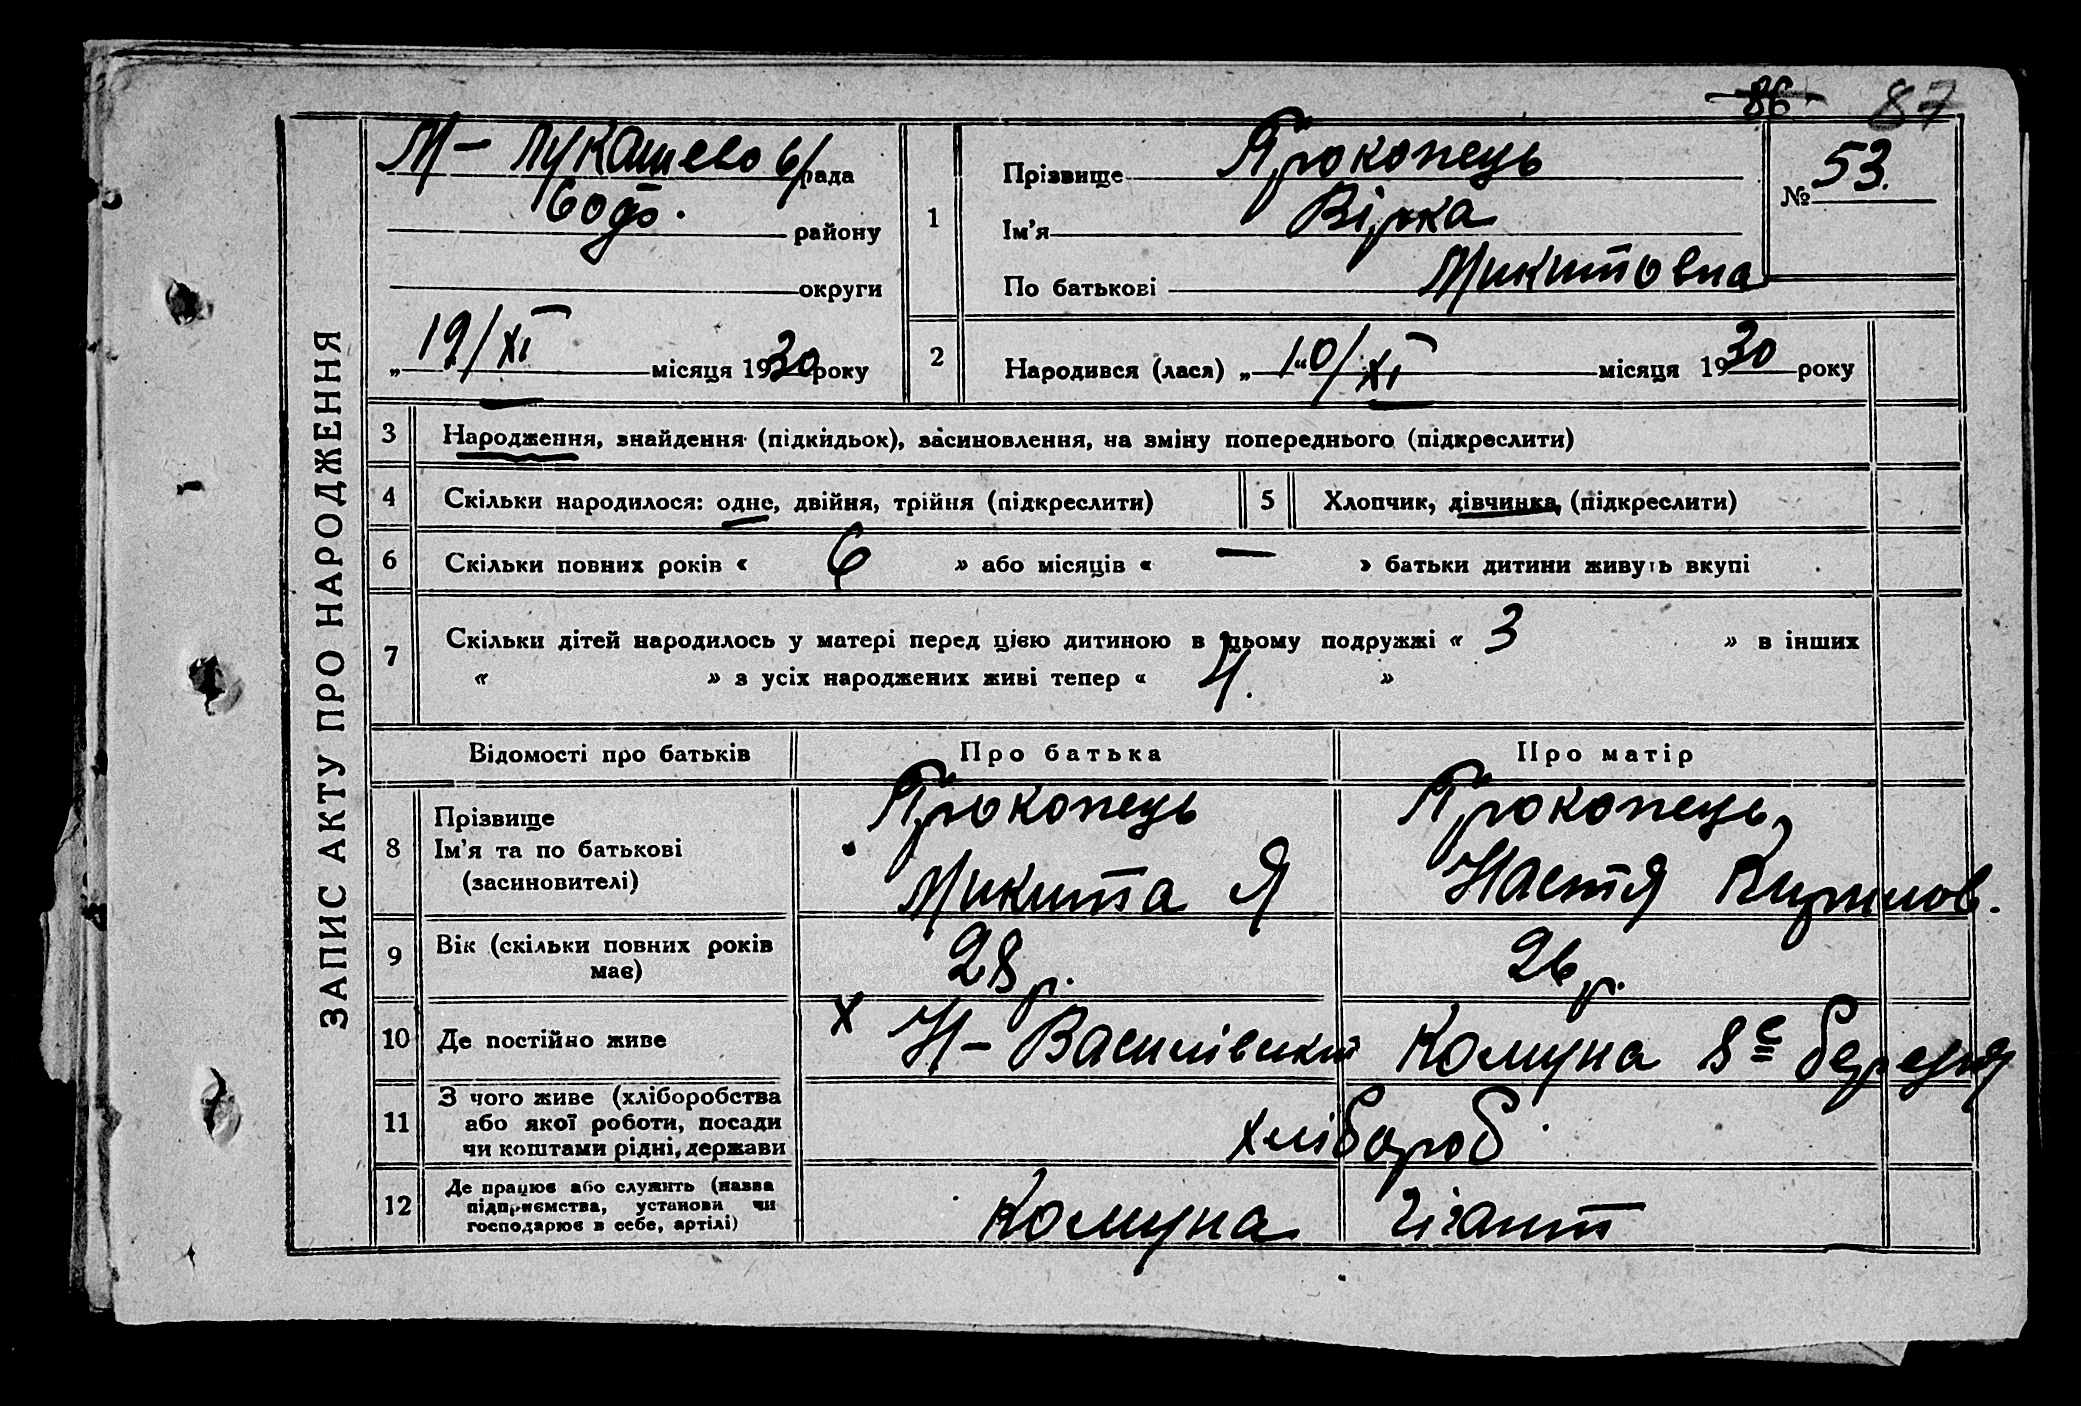 86 87
ЗАПИС АКТУ ПРО НАРОДЖЕННЯ
М- Лукашево с/рада
району
округи
„19/XI місяця 1930 року
1
Прізвище Прокопець
Ім'я Вірка
По батькові Микитовна
№ 53.
2 Народився (лася) „10/XI“ місяця 1930 року
3 Народження, знайдення (підкидьок), засиновлення, на зміну попереднього (підкреслити)
4 Скільки народилося: одне, двійня, трійня (підкреслити) 5 Хлопчик, дівчинка, (підкреслити)
6 Скільки повних років « 6 » або місяців « — » батьки дитини живуть вкупі
7 Скільки дітей народилось у матері перед цією дитиною в цьому подружжі « 3 » в інших
« » з усіх народжених живі тепер « 4. »
Відомості про батьків Про батька Про матір
8 Прізвище Прокопець Прокопець,
Ім'я та по батькові
(засиновителі) Микита Я Настя Кирилов.
9 Вік (скільки повних років
має) 28 р. 26 р.
10 Де постійно живе х Н- Василівський Комуна 8е березня
11 З чого живе (хліборобства
або якої роботи, посади
чи коштами рідні, держави хлібороб.
12 Де працює або служить (назва
підприємства, установи чи
господарює в себе, артілі) Комуна Гігант